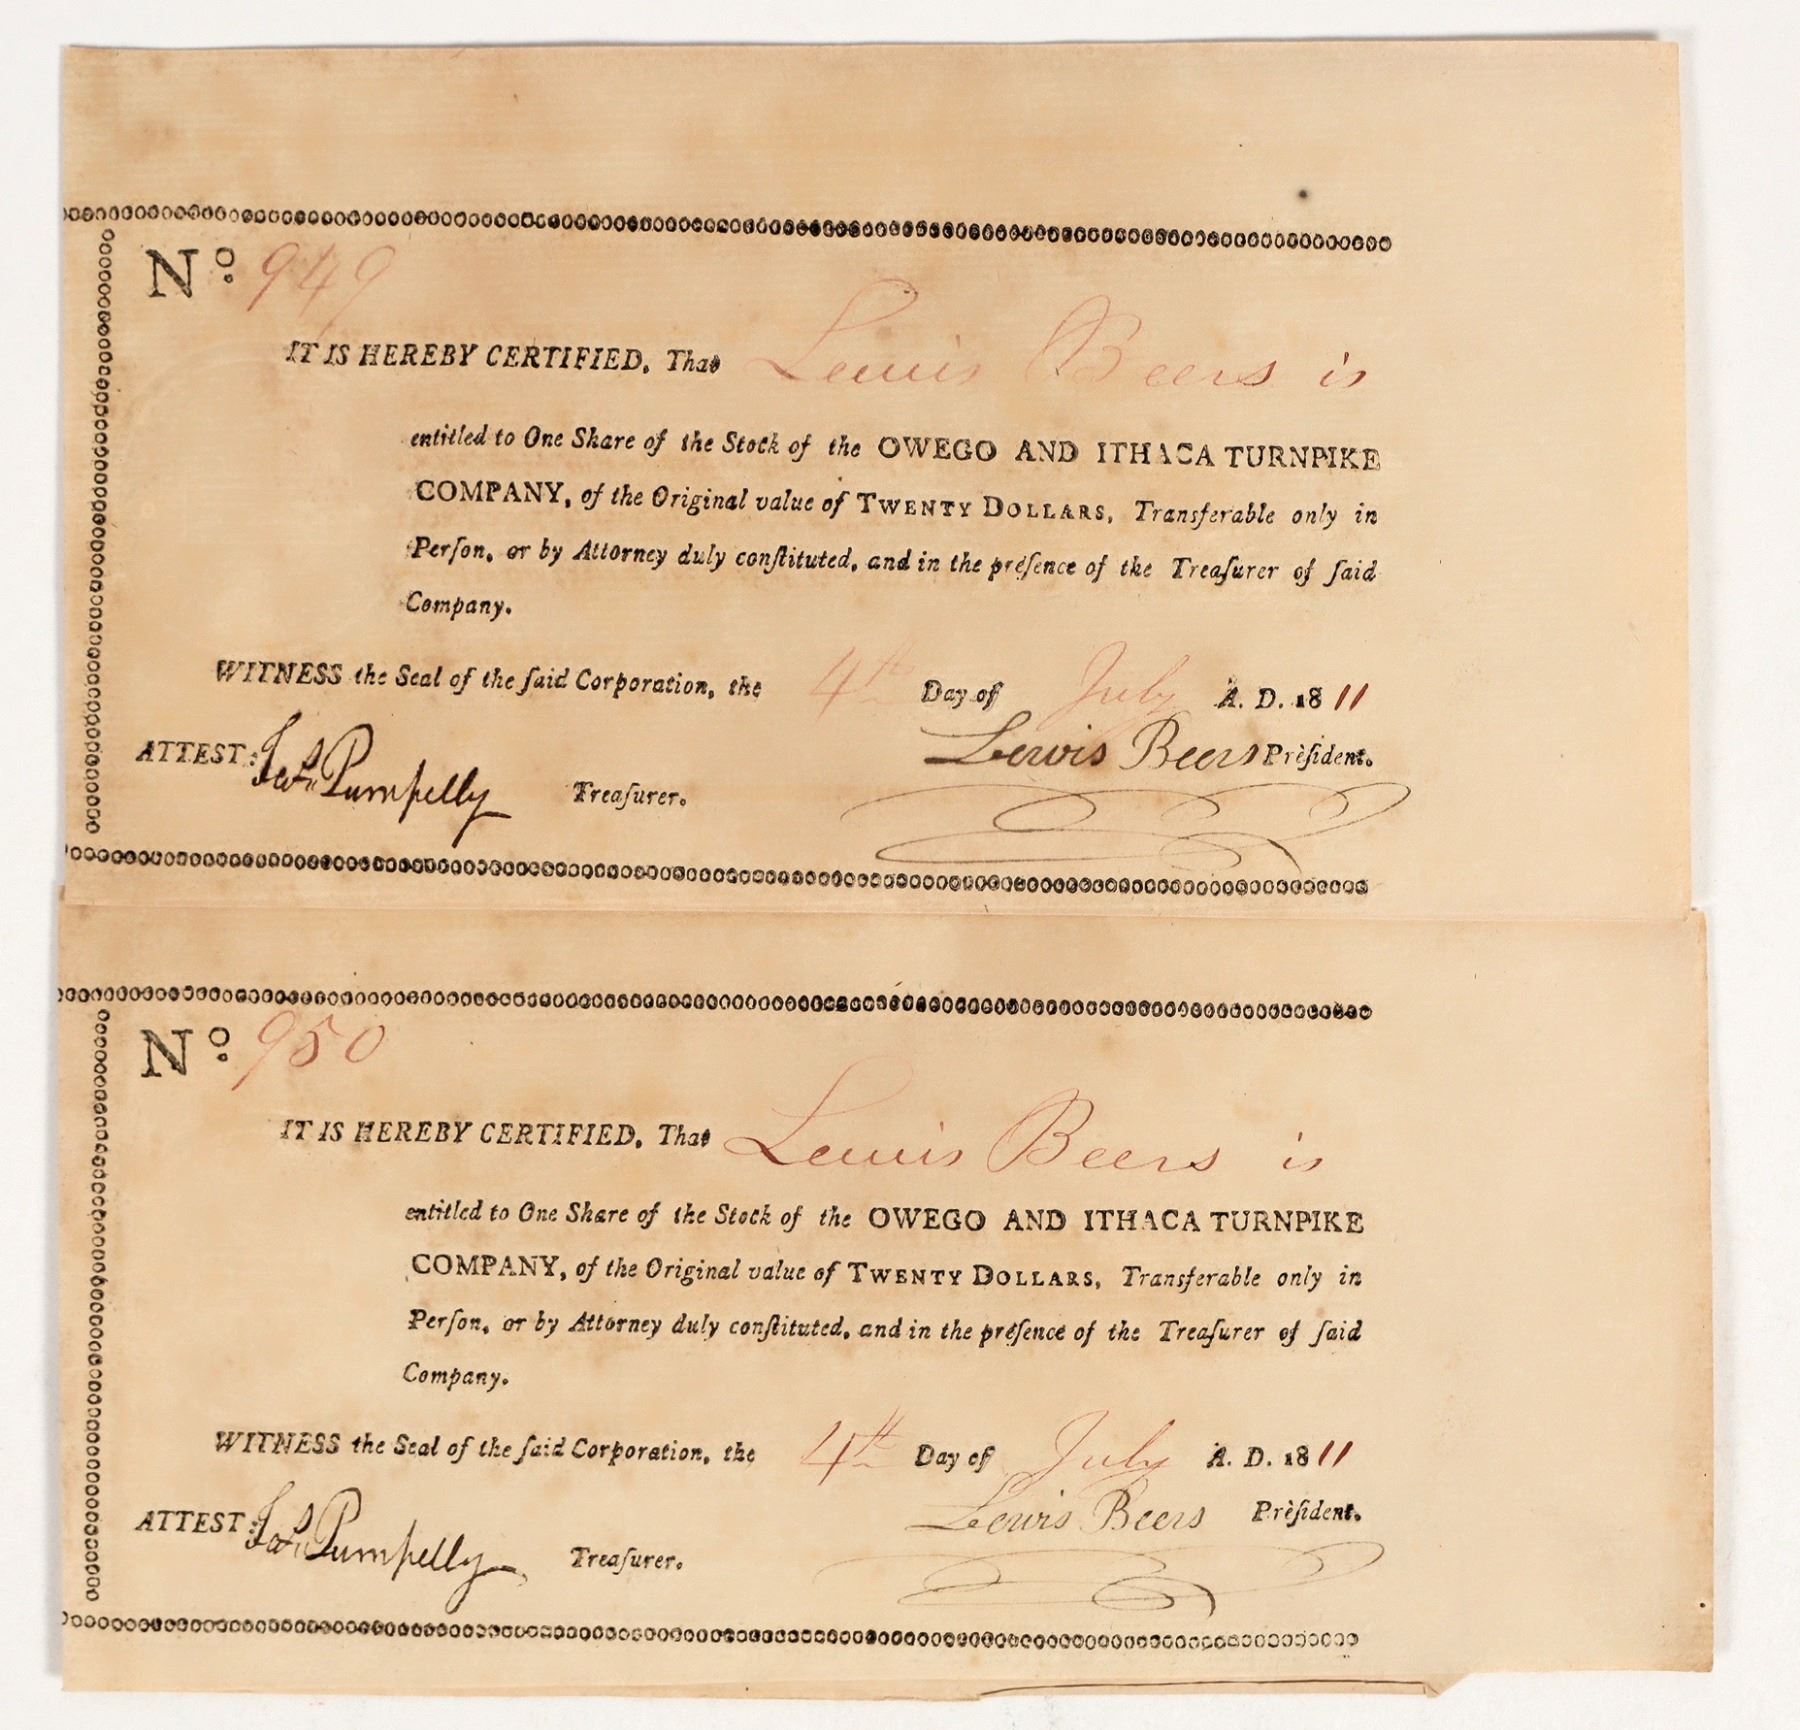 No. 949
IT IS HEREBY CERTIFIED, That Lewis Beers is
entitled to One Share of the Stock of the OWEGO AND ITHACA TURNPIKE
COMPANY, of the Original value of TWENTY DOLLARS, Transferable only in
Perſon, or by Attorney duly conſtituted, and in the preſence of the Treaſurer of ſaid
Company.
WITNESS the Seal of the ſaid Corporation, the 4th Day of July A. D. 1811
ATTEST: Jas Pumpelly Treaſurer. Lewis Beers Prèſident.
No. 950
IT IS HEREBY CERTIFIED, That Lewis Beers is
entitled to One Share of the Stock of the OWEGO AND ITHACA TURNPIKE
COMPANY, of the Original value of TWENTY DOLLARS, Transferable only in
Perſon, or by Attorney duly conſtituted, and in the preſence of the Treaſurer of ſaid
Company.
WITNESS the Seal of the ſaid Corporation, the 4th Day of July A. D. 1811
ATTEST: Jas Pumpelly Treaſurer. Lewis Beers Prèſident.